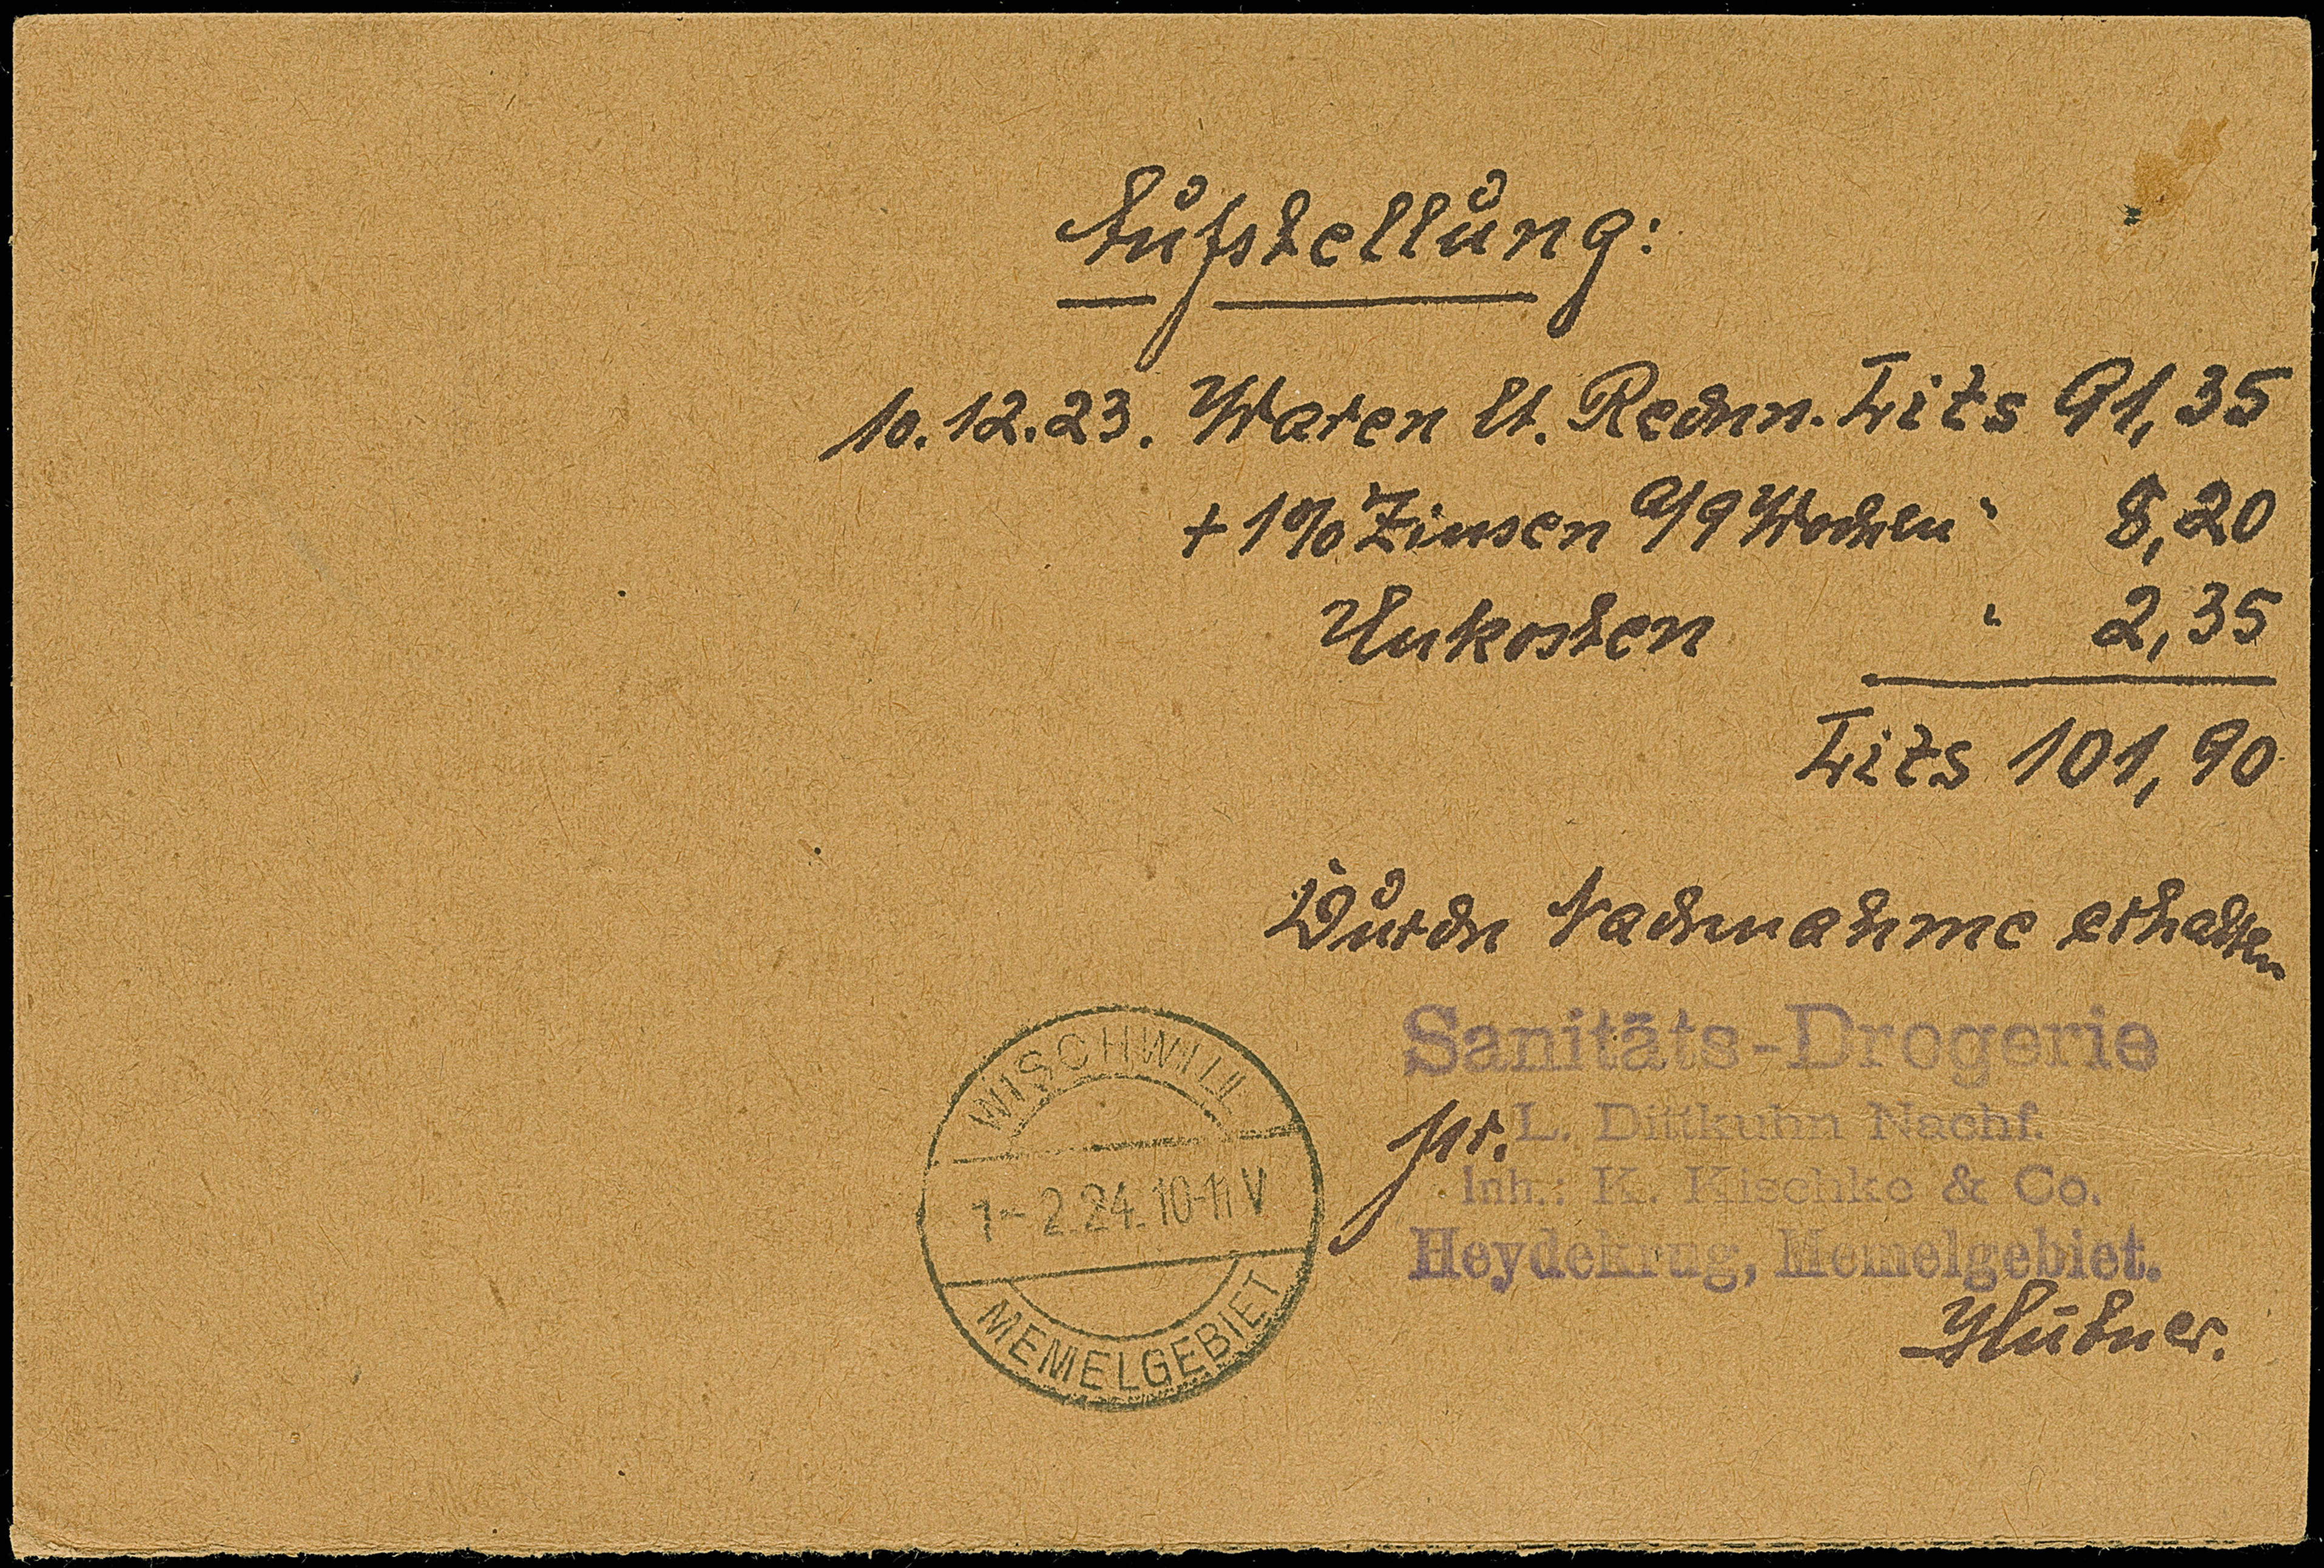 Aufstellung:
10.12.23. Waren lt. Rechn. Lits 91,35
+ 1% Zinsen a/9 Wochen " 8,20
Unkosten " 2,35
Lits 101,90
Durch Nachnahme erhalten
Sanitäts-Drogerie
pr. L. Dittkuhn Nachf.
Inh.: K. Kischke & Co.
Heydekrug, Memelgebiet.
WISCHWILL
1-2.24.10-11V
MEMELGEBIET